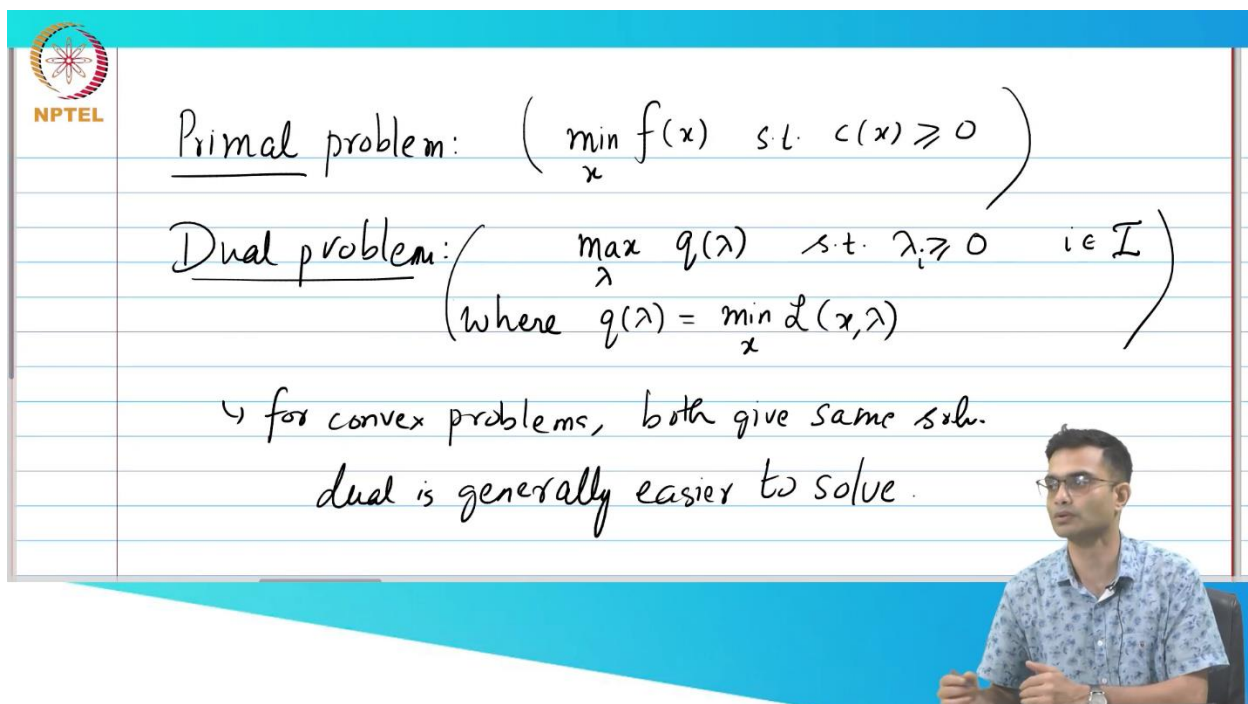 NPTEL
Primal problem: ( min f(x) s.t. c(x) ⩾ 0 )
x
Dual problem: ( max q(λ) s.t. λᵢ ⩾ 0 i ∈ I )
λ
where q(λ) = min ℒ(x,λ)
x
↳ for convex problems, both give same soln.
dual is generally easier to solve.